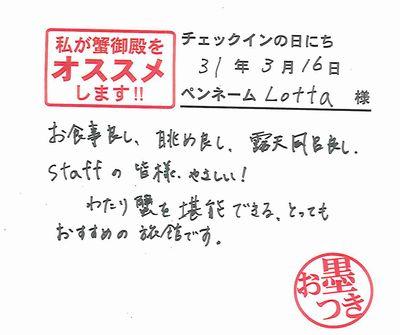 私が蟹御殿を
オススメ
します!!
チェックインの日にち
31年3月16日
ペンネーム Lotta 様
お食事良し、眺め良し、露天風呂良し、
staffの皆様、やさしい!
わたり蟹を堪能できる、とっても
おすすめの旅館です。
お墨つき